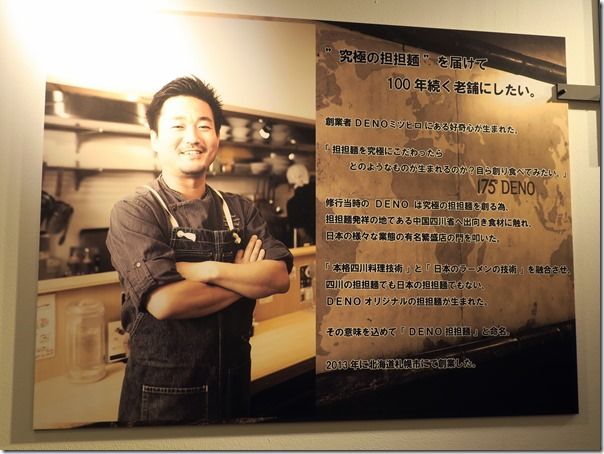 ”究極の担担麺”を届けて
100年続く老舗にしたい。
創業者 DENOミツヒロ にある好奇心が生まれた。
「担担麺を究極にこだわったら
どのようなものが生まれるのか？自ら創り食べてみたい。」
175°DENO
修行当時の DENO は究極の担担麺を創る為、
担担麺発祥の地である中国四川省へ出向き食材に触れ、
日本の様々な業態の有名繁盛店の門を叩いた。
「本格四川料理技術」と「日本のラーメンの技術」を融合させ、
四川の担担麺でも日本の担担麺でもない、
DENO オリジナルの担担麺が生まれた。
その意味を込めて「DENO 担担麺」と命名。
2013年に北海道札幌市にて創業した。